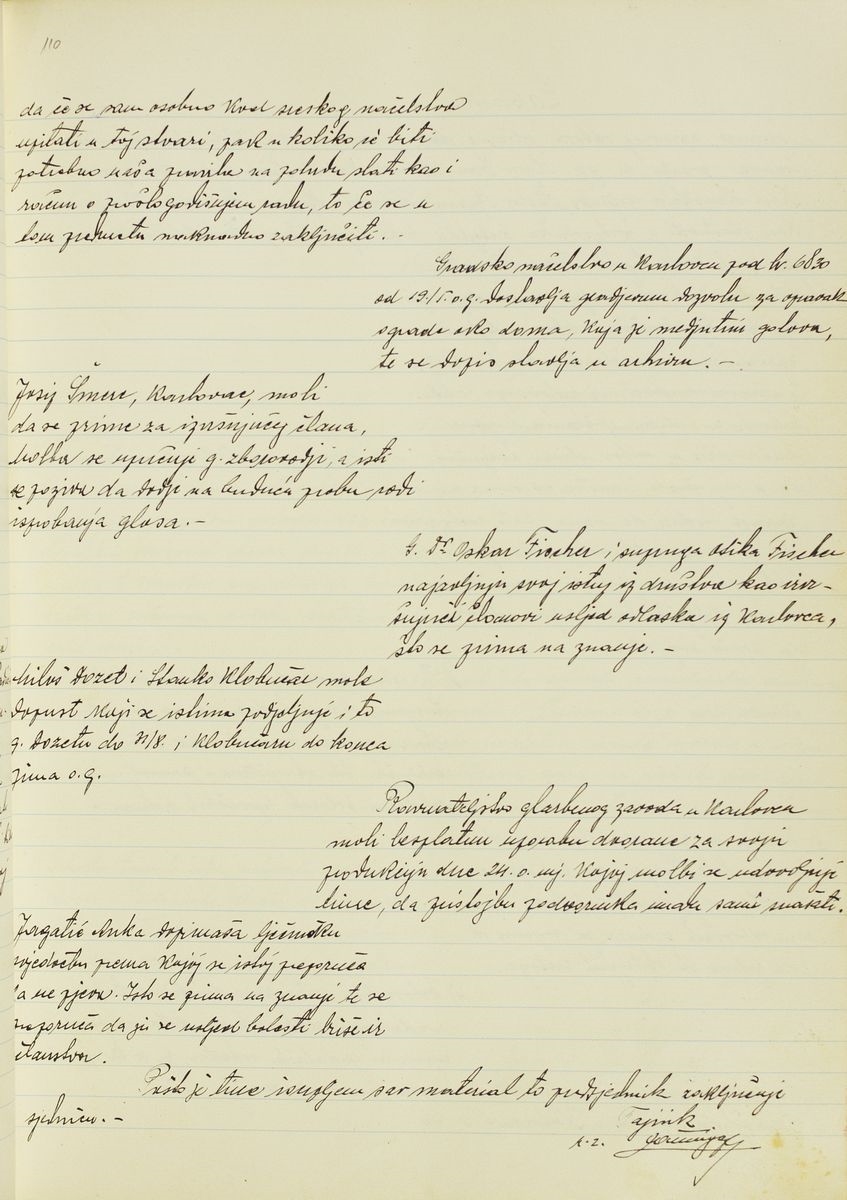 110
da će se sam osobno kod sreskog načelstva
upitati u toj stvari, pak u koliko će biti
potrebno naša pravila na potvrdu slati kao i
račun o prošlogodišnjem radu, to će se u
tom predmetu naknadno zaključiti. -
Gradsko načelstvo u Karlovcu pod br. 6830
od 19/5. o.g. dostavlja gradjevnu dozvolu za opravak
zgrade ovog doma, koja je medjutim gotova,
te se dopis stavlja u arhivu. -
Josip Šmerc, Karlovac, moli
da se prime za izvršujućeg člana,
Molba se upućuje g. zborovodji, a isti
se poziva da dodje na buduću probu radi
ispitbanja glasa. -
G. Dr. Oskar Fischer i supruga Fischer
najavljuju svoj istup iz društva kao izvr-
šujući članovi usljed odlaska iz Karlovca,
što se prima na znanje. -
Miloš Dozet i Stanko Klobučar mole
dopust koji se istima podjeljuje i to
g. Dozetu do /8. i Klobučaru do konca
o.g.
Ravnateljstvo glazbenog zavoda u Karlovcu
moli besplatnu uporabu dvorane za svoju
produkciju dne 24. o. mj. Kojoj molbi se udovoljuje
time, da pristojbu podvornika imadu sami snašati.
Anka doprinaša lječničku
svjedočbu prema kojoj se istoj preporuča
da ne pjeva. Isto se prima na znanje te se
preporuča da ju se usljed bolesti briše iz
članstva.
Pošto je time iscrpljen sav material to predsjednik zaključuje
sjednicu. -
Tajnik